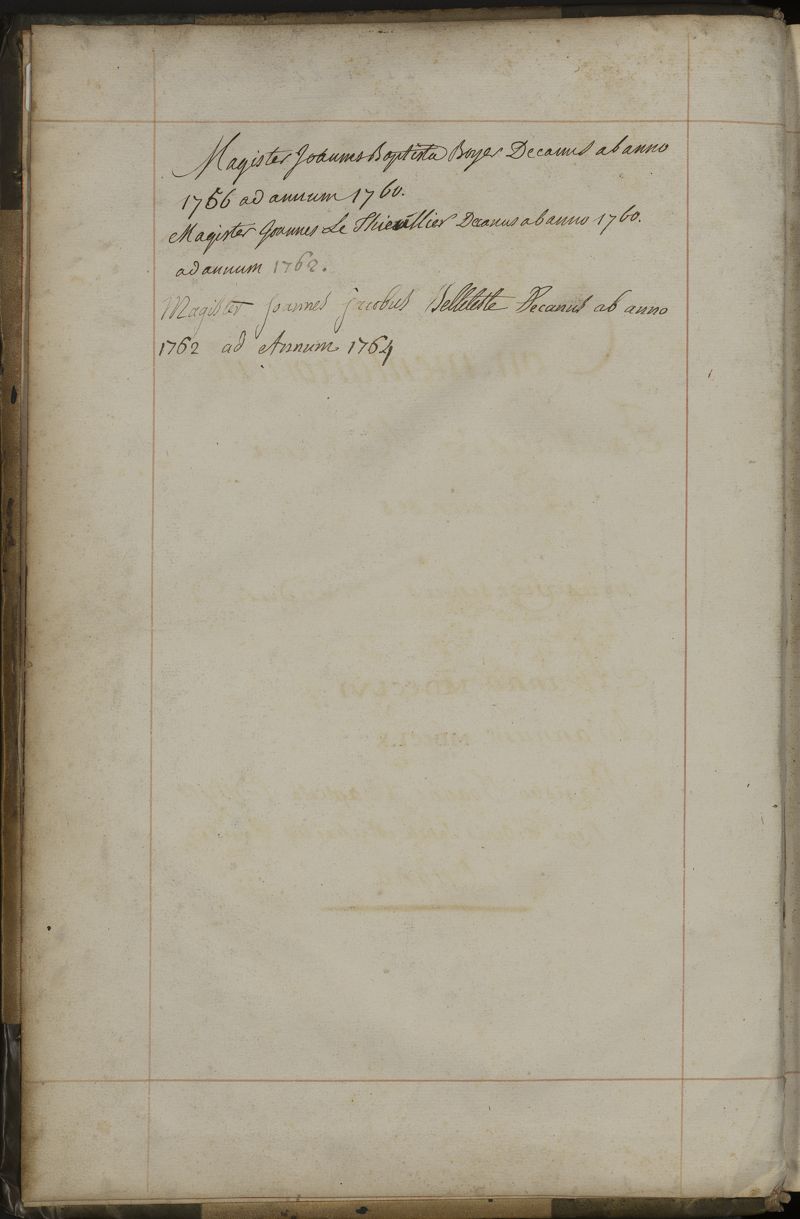 Magister Joannes Baptista Boyer Decanus ab anno
1756 ad annum 1760.
Magister Joannes Le Thieullier Decanus ab anno 1760.
ad annum 1762.
Magister Joannes Jacobus Belleteste Decanus ab anno
1762 ad Annum 1764